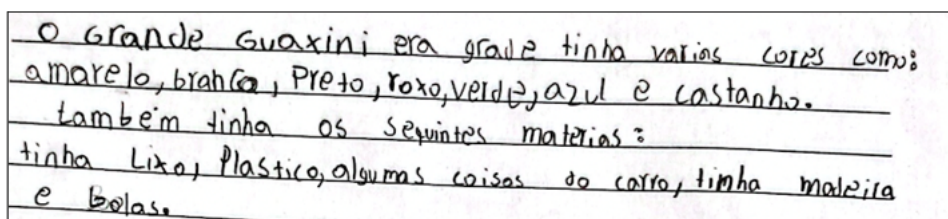 O Grande Guaxini era grade tinha varias cores como:
amarelo, branco, Preto, roxo, verde, azul e castanho.
também tinha os seguintes materias:
tinha Lixo, Plastico, algumas coisas do carro, timha madeira
e Bolas.